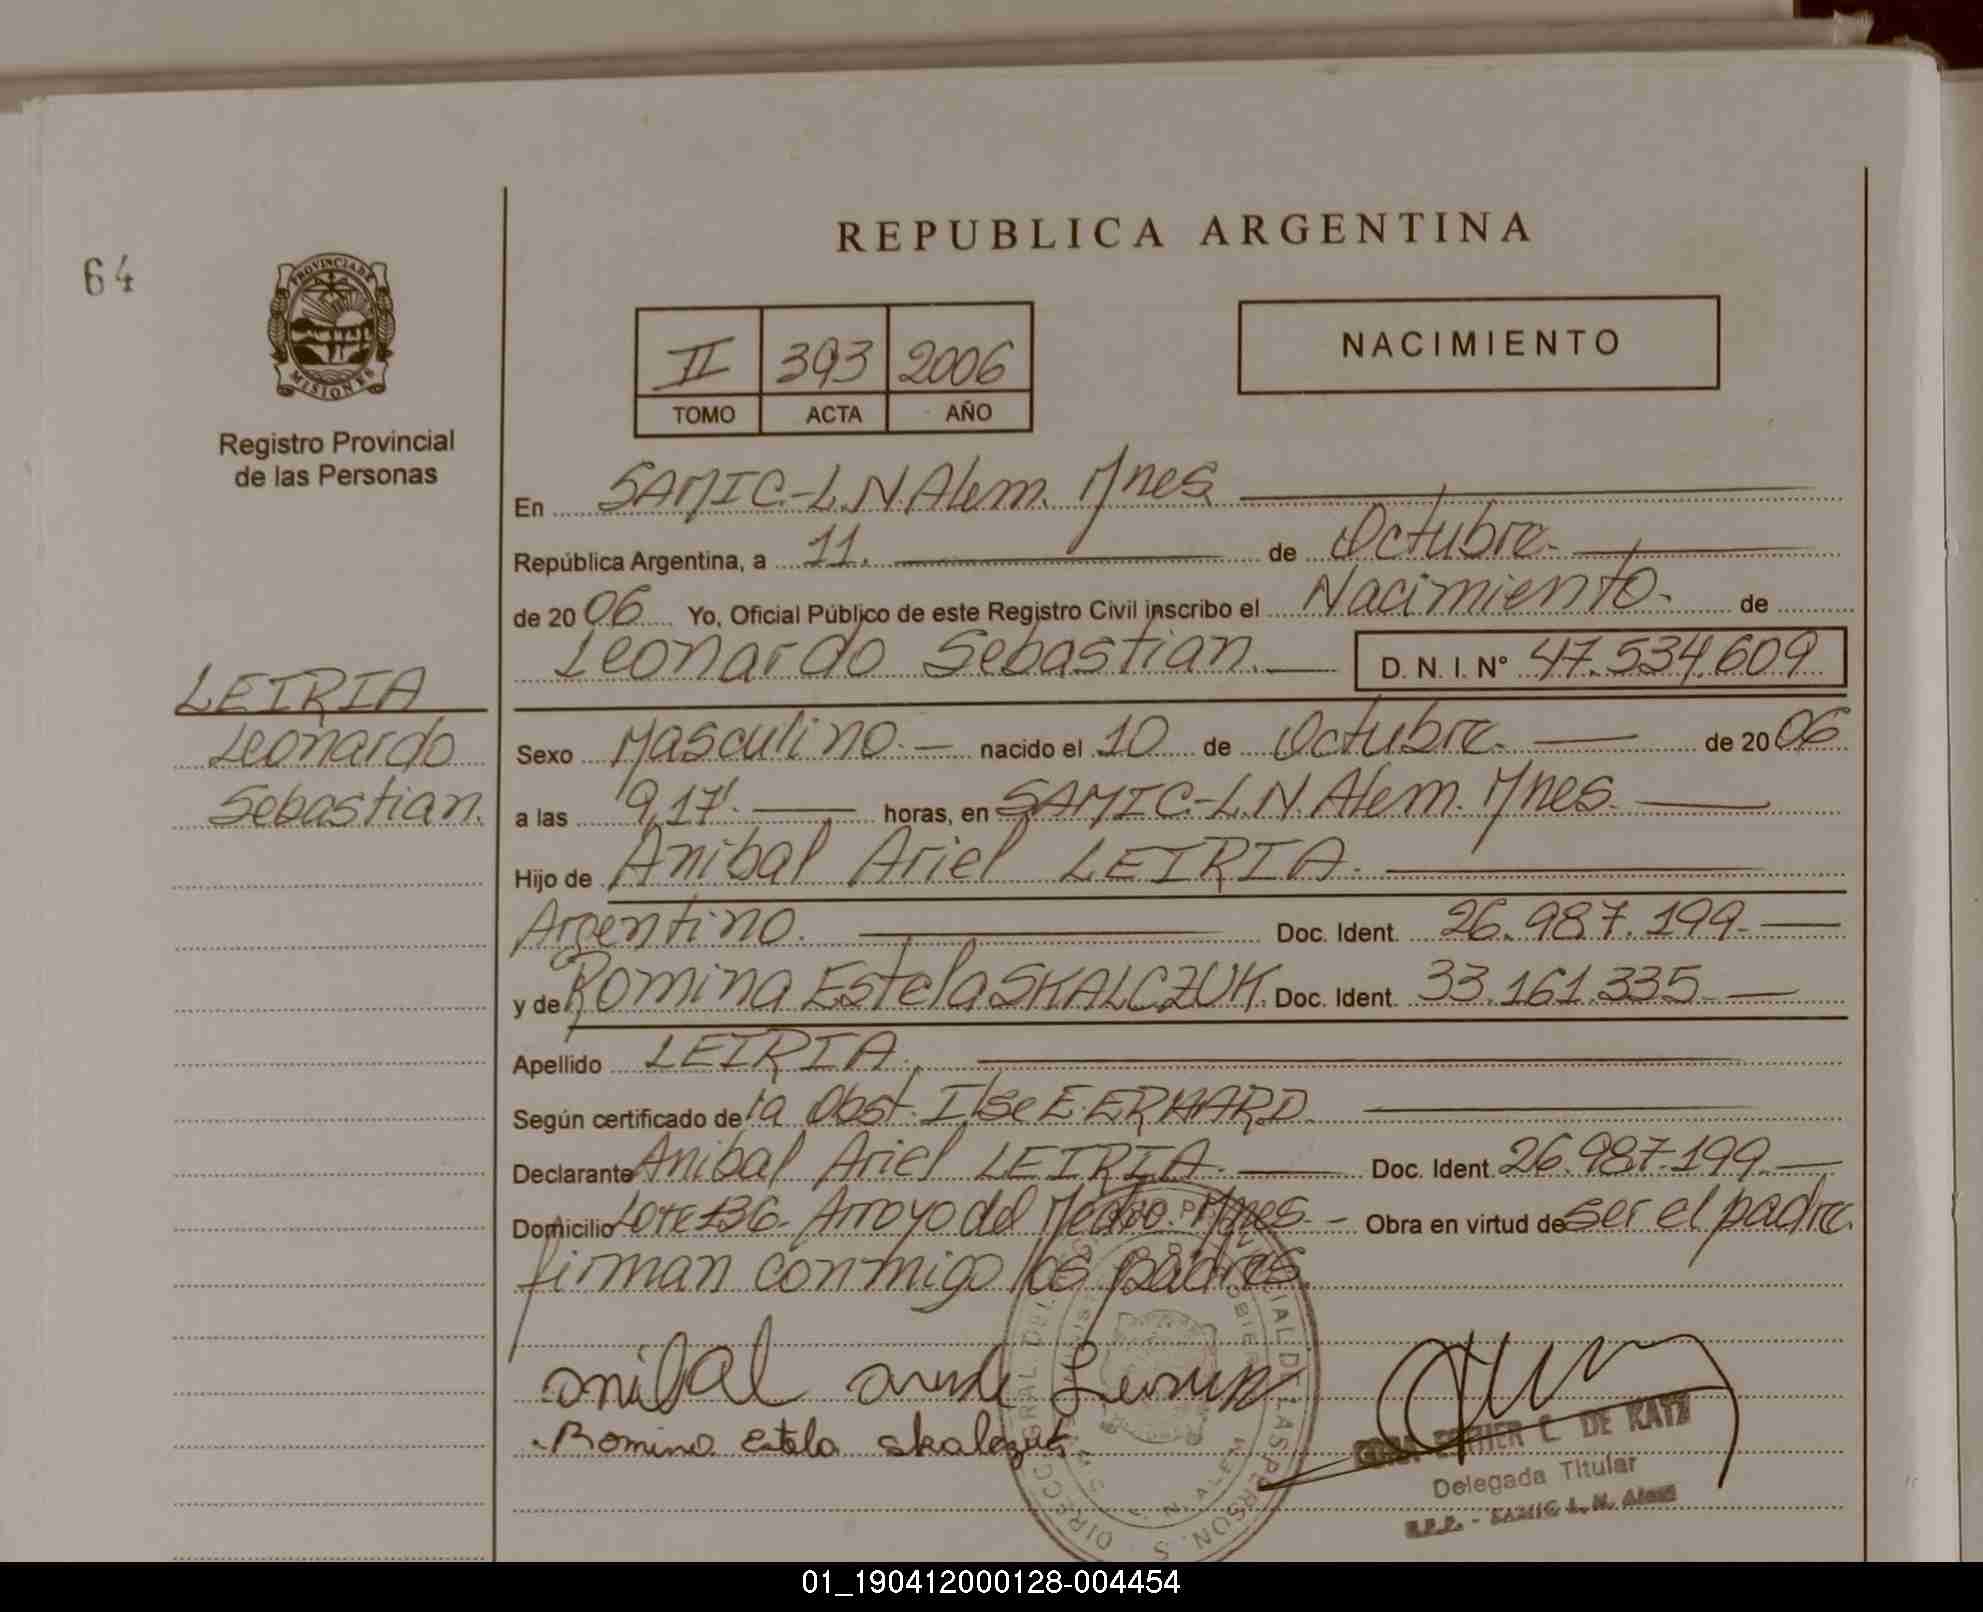 REPUBLICA ARGENTINA
64
PROVINCIA DE
MISIONES
Registro Provincial
de las Personas
II 393 2006
TOMO ACTA AÑO
NACIMIENTO
En SAMIC-L.N.Alem. Mnes.
República Argentina, a 11. de Octubre.
de 2006 Yo, Oficial Público de este Registro Civil inscribo el Nacimiento. de
Leonardo Sebastian. D. N. I. N° 47.534.609
LEIRIA
Leonardo
Sebastian.
Sexo Masculino. nacido el 10 de Octubre. de 2006
a las 9,17'. horas, en SAMIC-L.N.Alem. Mnes.
Hijo de Anibal Ariel LEIRIA.
Argentino. Doc. Ident. 26.987.199.
y de Romina Estela SKALCZUK. Doc. Ident. 33.161.335
Apellido LEIRIA.
Según certificado de la Obst. Ilse E. ERHARD.
Declarante Anibal Ariel LEIRIA. Doc. Ident. 26.987.199.
Domicilio Lote 136. Arroyo del Medio. Mnes. Obra en virtud de ser el padre.
firman conmigo los padres.
anibal
Romina Estela Skalczuk
ESTHER C. DE KATZ
Delegada Titular
R.P.P. - SAMIC L. N. Alem
01_190412000128-004454